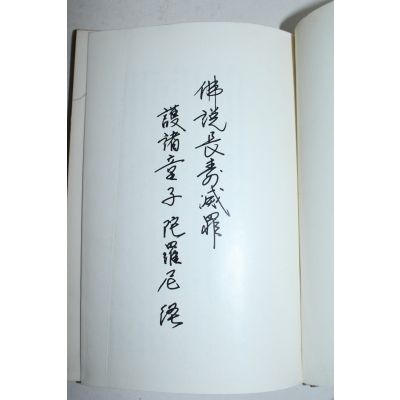 佛說長壽滅罪
護諸童子陀羅尼經